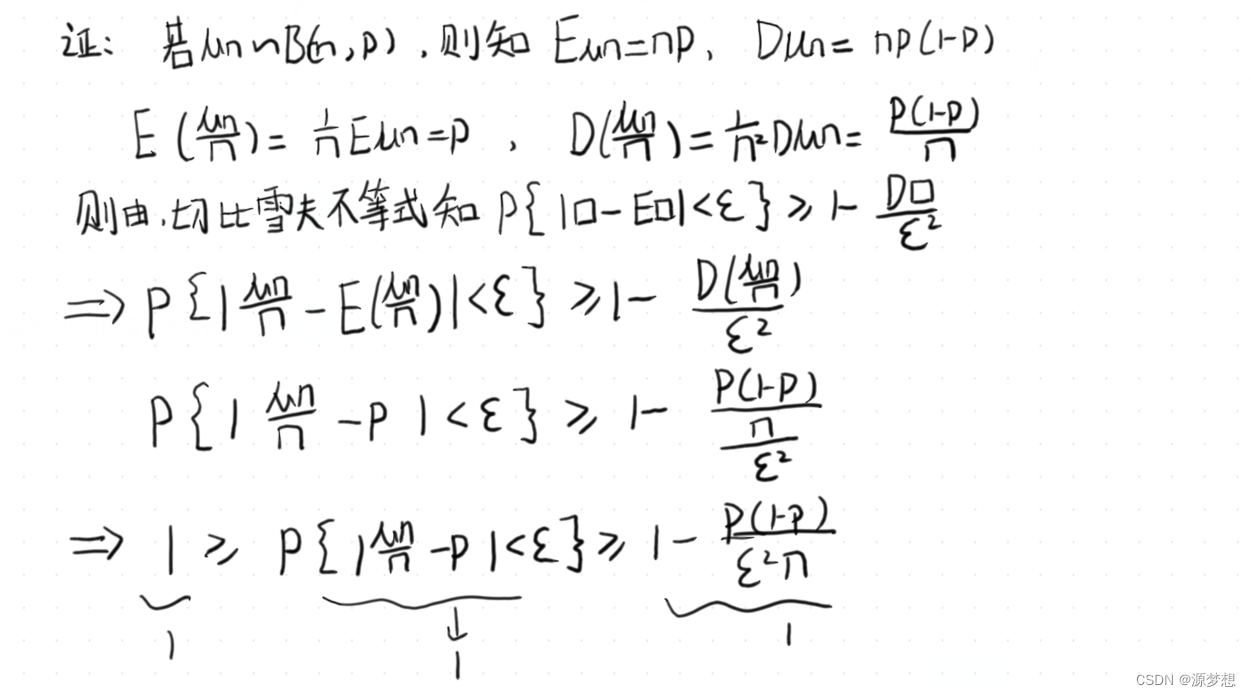 证: 若μn~B(n,p),则知 Eμn=np, Dμn=np(1-p)
E(μn/n)=1/n Eμn=p, D(μn/n)=1/n² Dμn=p(1-p)/n
则由,切比雪夫不等式知 P{|□-E□|<ε}≥1-D□/ε²
⇒P{|μn/n-E(μn/n)|<ε}≥1-D(μn/n)/ε²
P{|μn/n-p|<ε}≥1-(p(1-p)/n)/ε²
⇒ 1≥P{|μn/n-p|<ε}≥1-p(1-p)/(ε²n)
1 ↓ 1 1
CSDN @源梦想